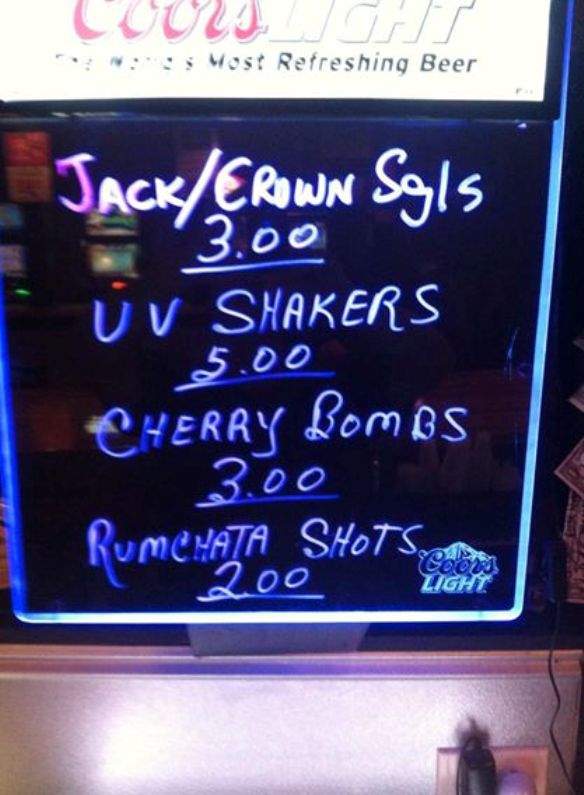 Coors LIGHT
The World's Most Refreshing Beer
JACK/CROWN Sgls
3.00
UV SHAKERS
5.00
CHERRY BOMBS
3.00
RUMCHATA SHOTS
2.00
Coors
LIGHT